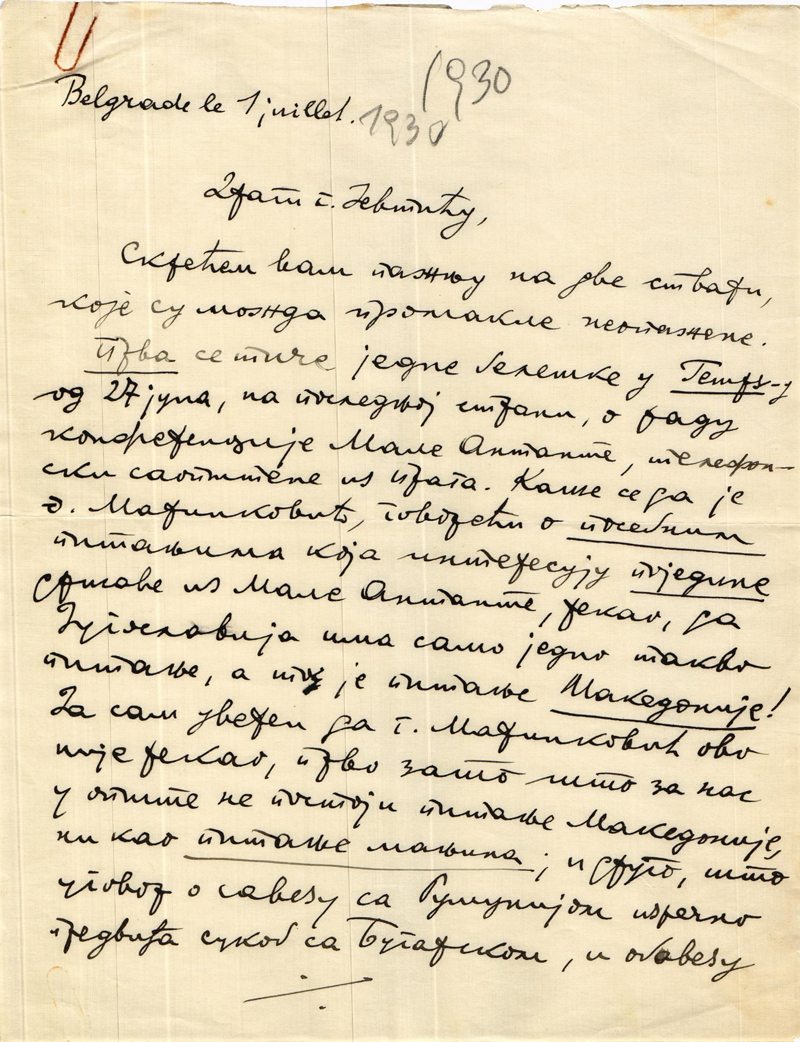 1930
Belgrade le 1 juillet.
1930
Драги г. Јевтићу,
Скрећем вам пажњу на две ствари,
које су можда промакле неопажене.
Прва се тиче једне белешке у Temps-у
од 27 јуна, на последњој страни, о раду
конференције Мале Антанте, телефон-
ски саопштене из Прага. Каже се да је
г. Маринковић, говорећи о посебним
питањима која интересују поједине
државе из Мале Антанте, рекао, да
Југославија има само једно такво
питање, а то је питање Македоније!
Ја сам уверен да г. Маринковић ово
није рекао, прво зато што за нас
у опште не постоји питање Македоније,
ни као питање мањина; и друго, што
уговор о савезу са Румунијом изречно
предвиђа сукоб са Бугарском, и обавезу